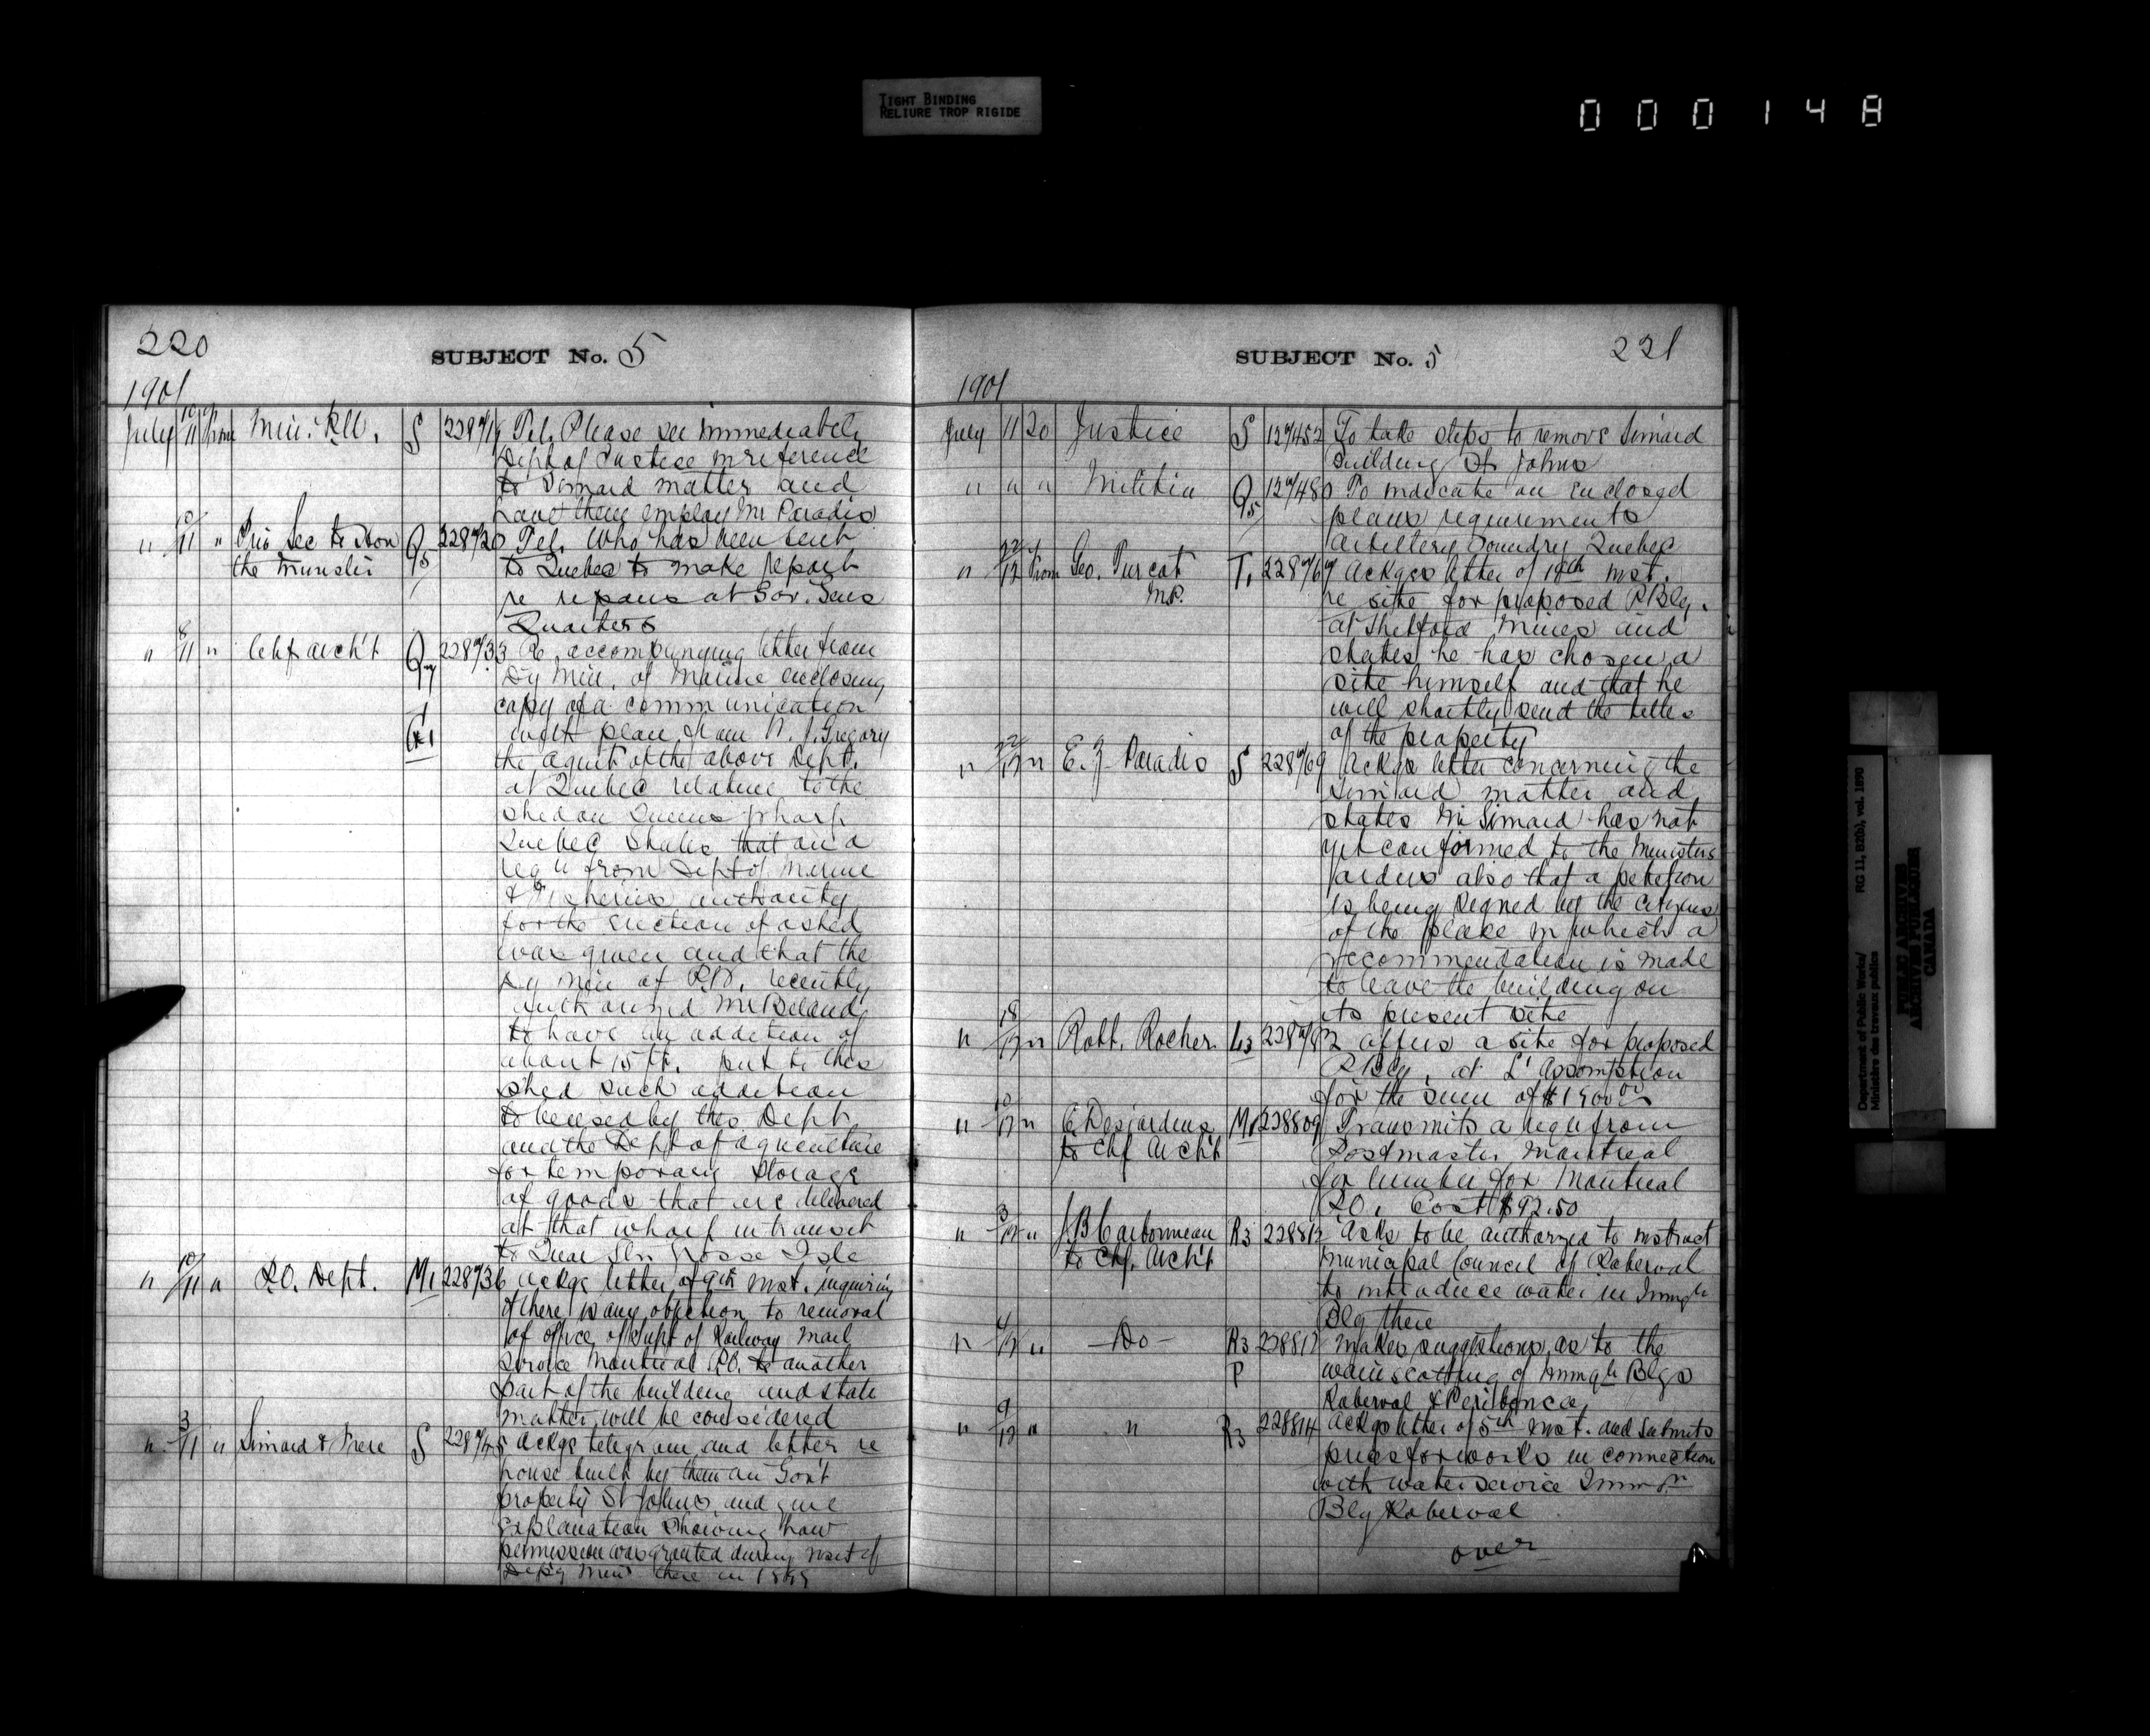 TIGHT BINDING
RELIURE TROP RIGIDE
000148
220
SUBJECT No. 5
1901
July 10/11 from Min. P.W. S 228719 Tel. Please see immediately
Dept of Justice in reference
to Simard matter and
have them employ Mr Paradis
" 10/11 " Priv Sec to Hon Q5 228720 Tel. Who has been sent
the Minister to Quebec to make report
re repairs at Gov. Genls
Quarters
" 8/11 " Chf arch't Q77 228733 Re accompanying letter from
Dy Min. of Marine enclosing
copy of a communication
with plan from N. J. Gregory
the agent of the above Dept.
at Quebec relative to the
shed on Queens Wharf
Quebec States that on a
reqn from Dept of Marine
& Fisheries authority
for the erection of a shed
was given and that the
Dy Min of P.W. recently
authorized Mr Beland
to have an addition of
about 15 ft. put to this
shed such addition
to be used by this Dept
and the Dept of agriculture
for temporary storage
of goods that are delivered
at that wharf in transit
to Quar Stn Grosse Isle
" 10/11 " P.O. Dept. M1 228736 Ackgs letter of 9th inst. inquiring
if there is any objection to removal
of office of Supt of Railway Mail
Service Montreal P.O. to another
part of the building and state
matter will be considered
" 3/11 " Simard & Frere S 228745 Ackgs telegram and letter re
house built by them on Gov't
property St Johns and give
explanation showing how
permission was granted during visit of
Depy Minr there in 1899
SUBJECT No. 5
221
1901
July 11 20 Justice S 127452 To take steps to remove Simard
building St Johns
" " " Militia Q5 127480 To indicate on enclosed
plans requirements
Artillery Foundry Quebec
" 12 from Geo. Turcot T1 Ackges letter of 18th inst.
M.P. re site for proposed P. Blg.
at Thetford Mines and
states he has chosen a
site himself and that he
will shortly send the titles
of the property
" 12 " E. Z. Paradis S 228769 Ackgs letter concerning the
Simard matter and
states Mr Simard has not
yet conformed to the Ministers
orders also that a petition
is being signed by the citizens
of the place in which a
recommendation is made
to leave the building on
its present site
" 18/12 " Robt. Rocher L3 228792 Offers a site for proposed
P Blg. at L'Assomption
for the sum of $1500 00
" 10/12 " E. Desjardins M1 228809 Transmits a reqn from
to Chf Arch't Postmaster Montreal
for lumber for Montreal
P.O. Cost $92.50
" 3/12 " J. B. Carbonneau R3 228812 Asks to be authorized to instruct
to Chf. Arch't Municipal Council of Roberval
to introduce water in Immgn
Blg there
" 4/12 " —Do— R3 228813 Makes suggestions as to the
P wainscotting of Immgn Blgs
Roberval & Peribonca
" 9/12 " " R3 228814 Ackgs letter of 5th inst. and submits
prices for works in connection
with water service Immgn
Blg Roberval
over
Department of Public Works/ RG 11, B2(b), vol. 1690
Ministère des travaux publics
PUBLIC ARCHIVES
ARCHIVES PUBLIQUES
CANADA